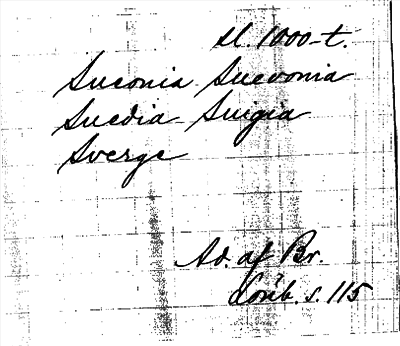 sl. 1000-t.
Suconia Suevonia
Suedia Suigia
Sverge
Ad. af Br.
Lönb. s. 115